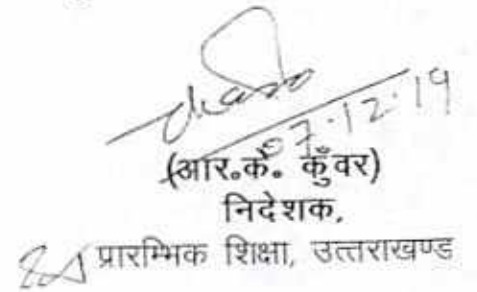 07.12.19
(आर०के० कुँवर)
निदेशक,
प्रारम्भिक शिक्षा, उत्तराखण्ड